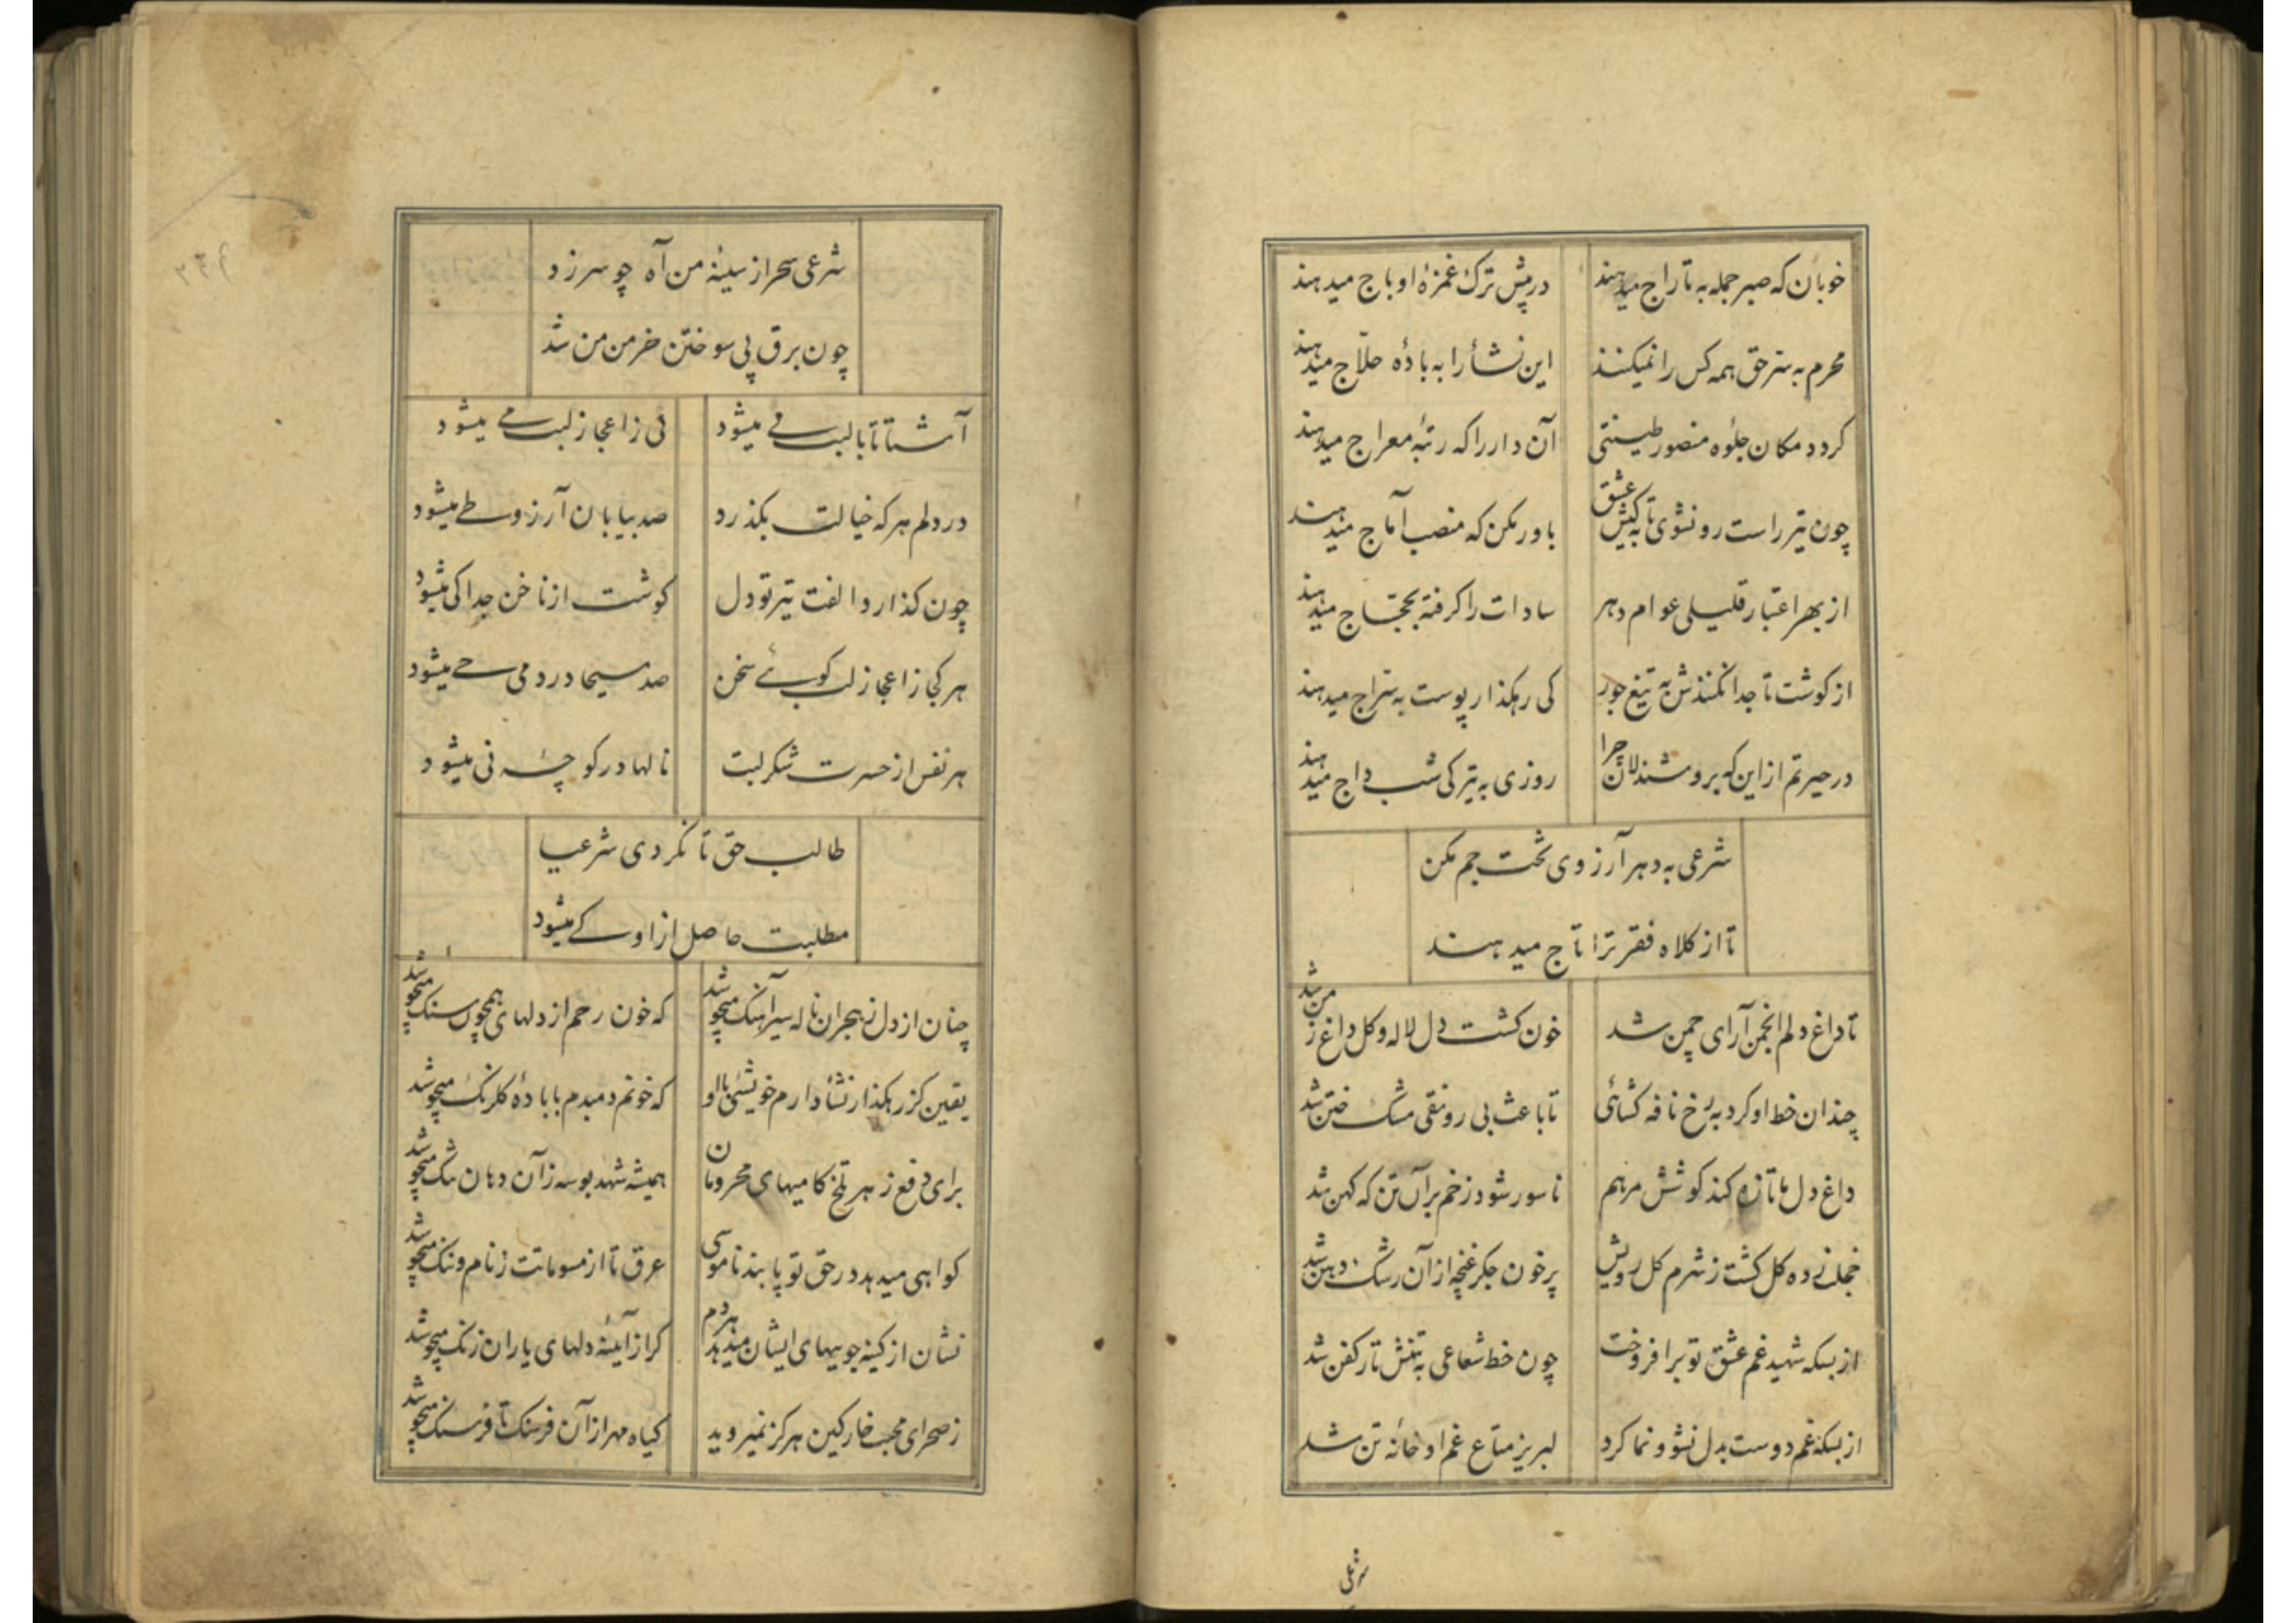 خوبان که صبر جمله به تاراج میدهند در پیش ترک غمزهٔ او باج میدهند
محرم به سر حق همه کس را نمیکنند این نشأ را به بادهٔ حلّاج میدهند
کردد مکان جلوه منصور طینتی آن دار را که رتبهٔ معراج میدهند
چون تیر راست رو نشوی تا به کیش عشق باور مکن که منصب آماج میدهند
از بهر اعتبار قلیلی عوام دهر سادات را کرفته بحجّاج میدهند
از کوشت تا جدا نکنندش به تیغ جور کی رهکذار پوست به سراج میدهند
در حیرتم از این که بروشندلان چرا روزی به تیرکی شب داج میدهند
شرعی به دهر آرزوی تخت جم مکن
تا از کلاه فقر ترا تاج میدهند
تا داغ دلم انجمن آرای چمن شد خون کشت دل لاله و کل داغ ز من شد
چندان خط او کرد به رخ نافه کشائی تا باعث بی رونقی مشک ختن شد
داغ دل ما تازه کند کوشش مرهم ناسور شود زخم بر آن تن که کهن شد
خجلت زده کل کشت ز شرم کل رویش پر خون جکر غنچه از آن رشک دهن شد
از بسکه شهید غم عشق تو برافروخت چون خط شعاعی به تنش تار کفن شد
از بسکه غم دوست بدل نشو و نما کرد لبریز متاع غم او خانهٔ تن شد
شرعی
شرعی سحر از سینهٔ من آه چو سر زد
چون برق پی سوختن خرمن من شد
آشنا تا با لبت می میشود نی ز اعجاز لبت می میشود
در دلم هر که خیالت بکذرد صد بیابان آرزو طی میشود
چون کذارد الفت تیر تو دل کوشت از ناخن جدا کی میشود
هر کجا ز اعجاز لب کوئی سخن صد مسیحا در دمی حی میشود
هر نفس از حسرت شکر لبت نالها در کوچهٔ نی میشود
طالب حق تا نکردی شرعیا
مطلبت حاصل از او کی میشود
چنان از دل ز هجران ناله سیر آهنک میجوشد که خون رحم از دلهای همچون سنک میجوشد
یقین کز رهکذار نشأ دارم خویشئی با او که خونم دمبدم با بادهٔ کلرنک میجوشد
برای دفع زهر تلخ کامیهای محرومان همیشه شهد بوسه زآن دهان تنک میجوشد
کواهی میدهد در حق تو پابند ناموسی عرق تا از مسوماتت ز نام و ننک میجوشد
نشان از کینه جوییهای ایشان میدهد هر دم کر از آیینهٔ دلهای یاران زنک میجوشد
ز صحرای محبت خار کین هرکز نمیروید کیاه مهر از آن فرسنک تا فرسنک میجوشد